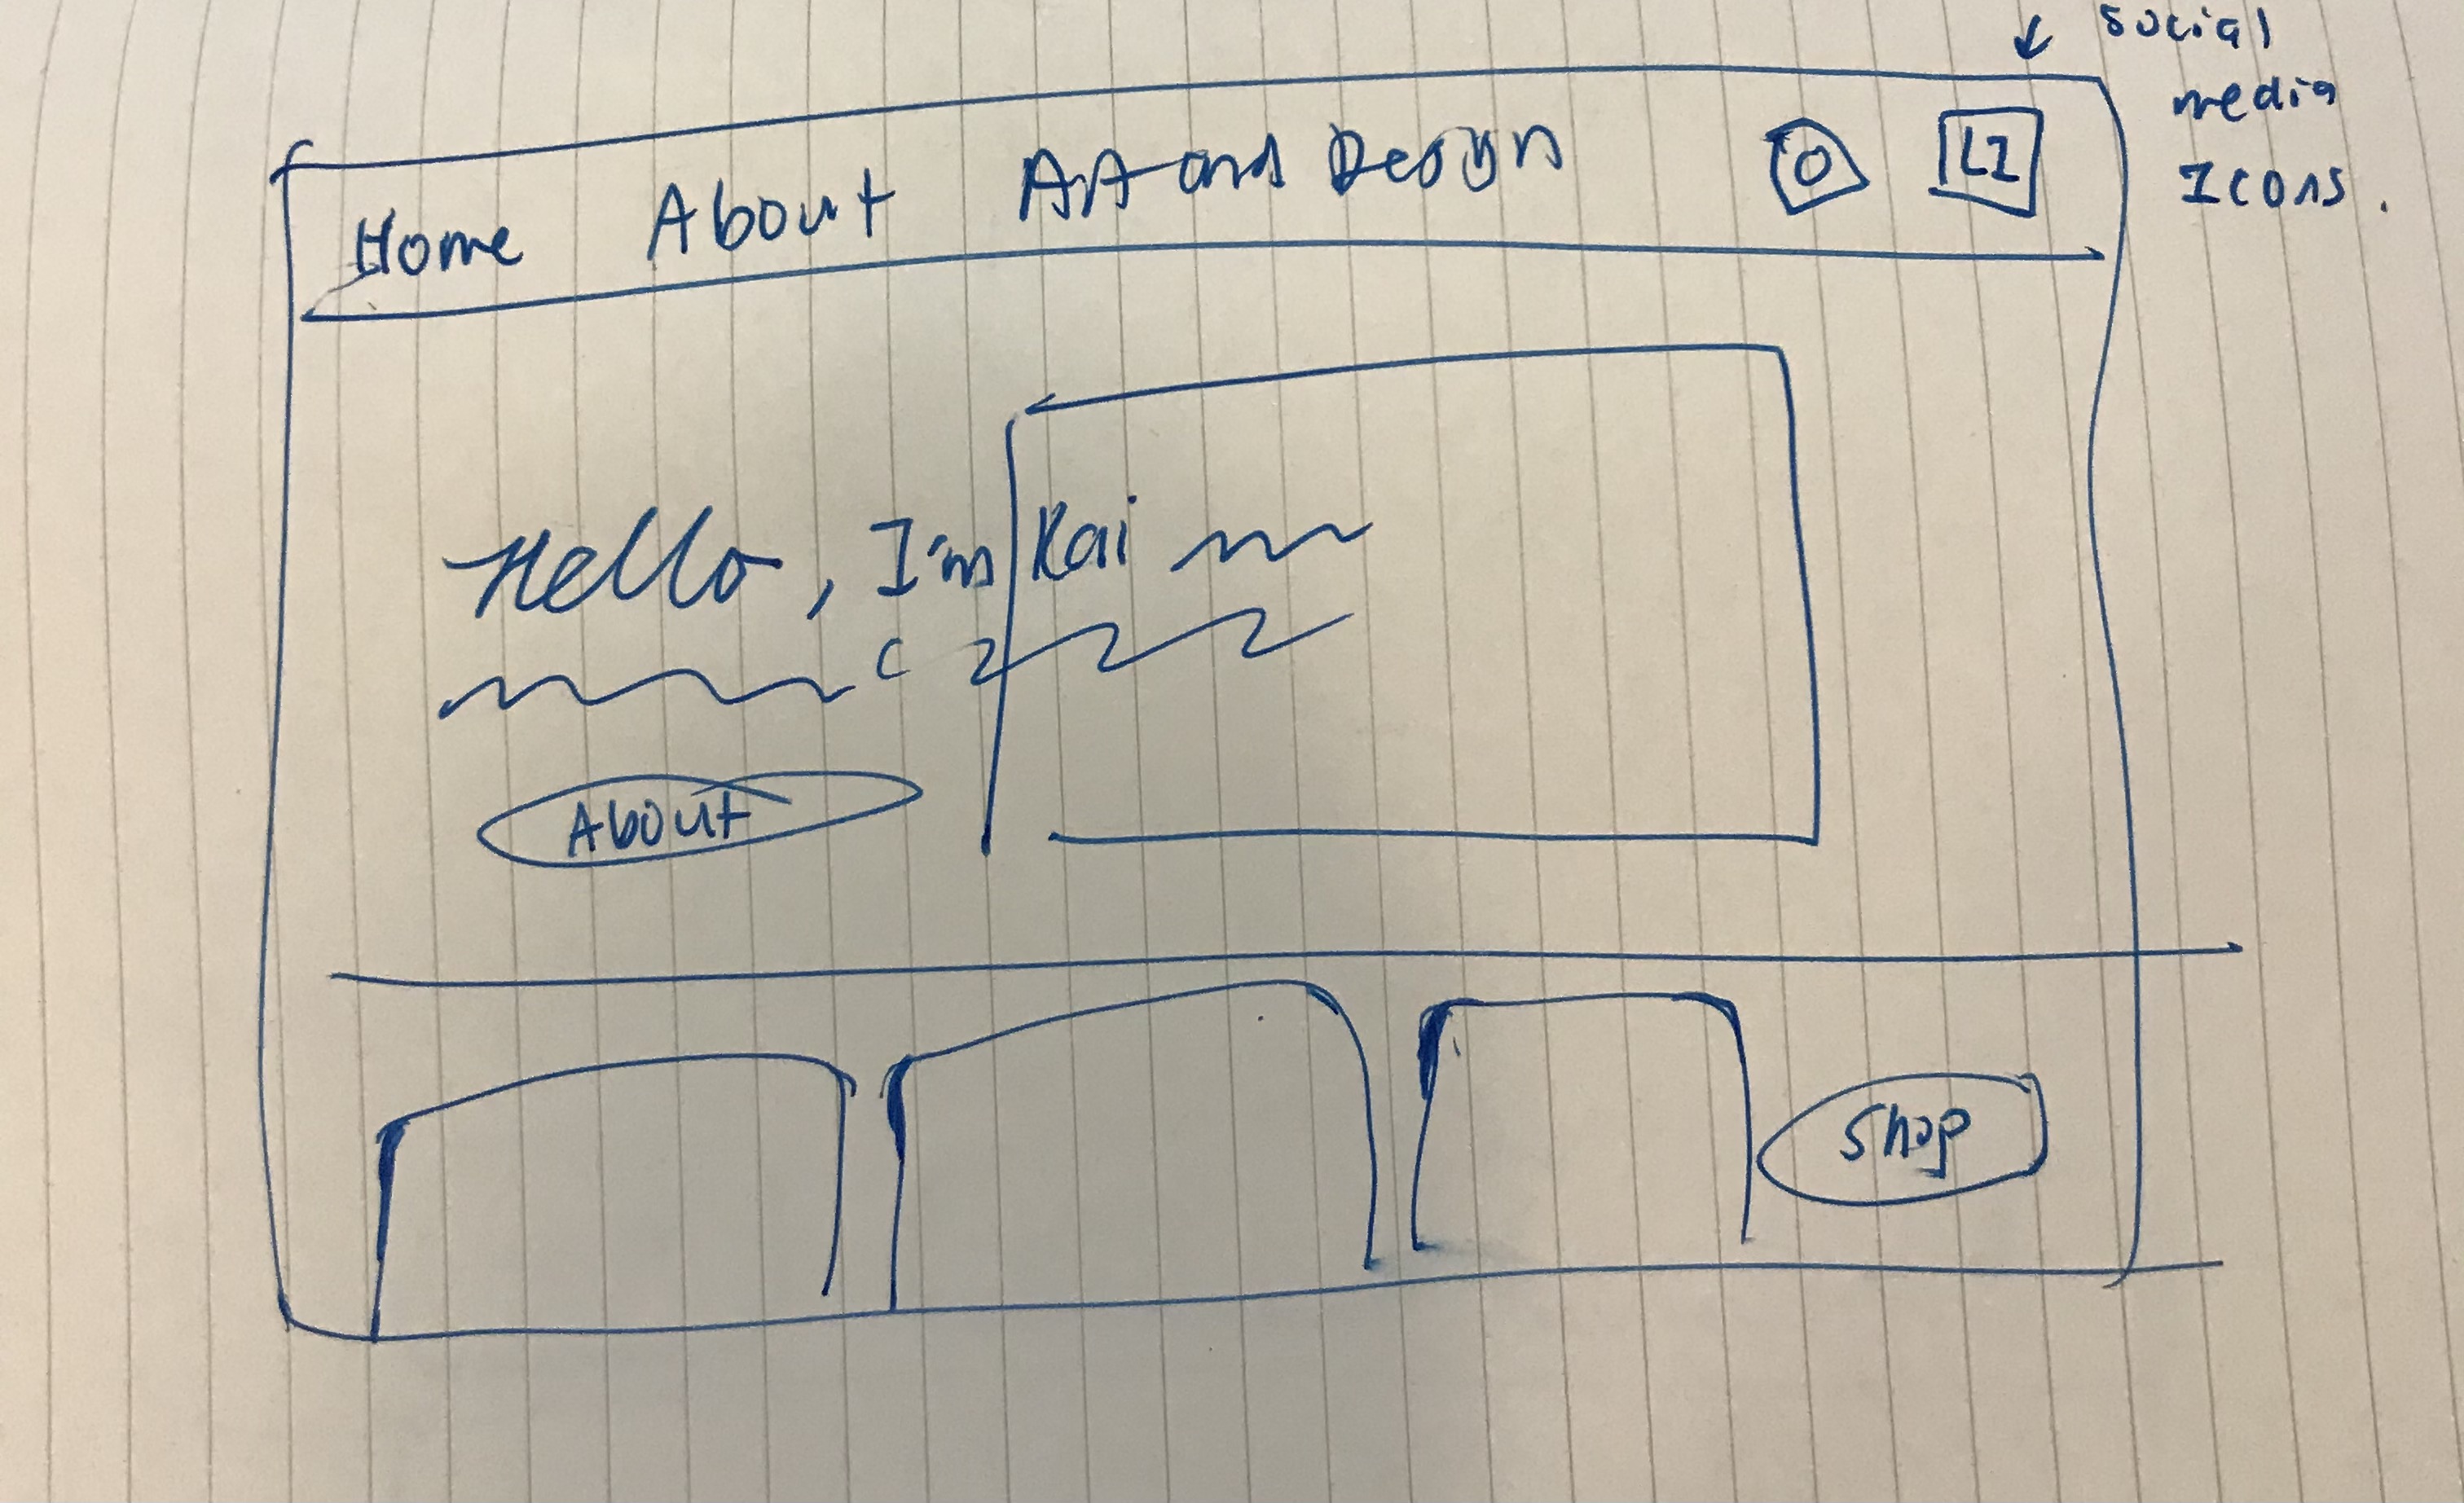 social
media
Icons.
Home About Art and Design LI
Hello, I'm Kai
About
Shop